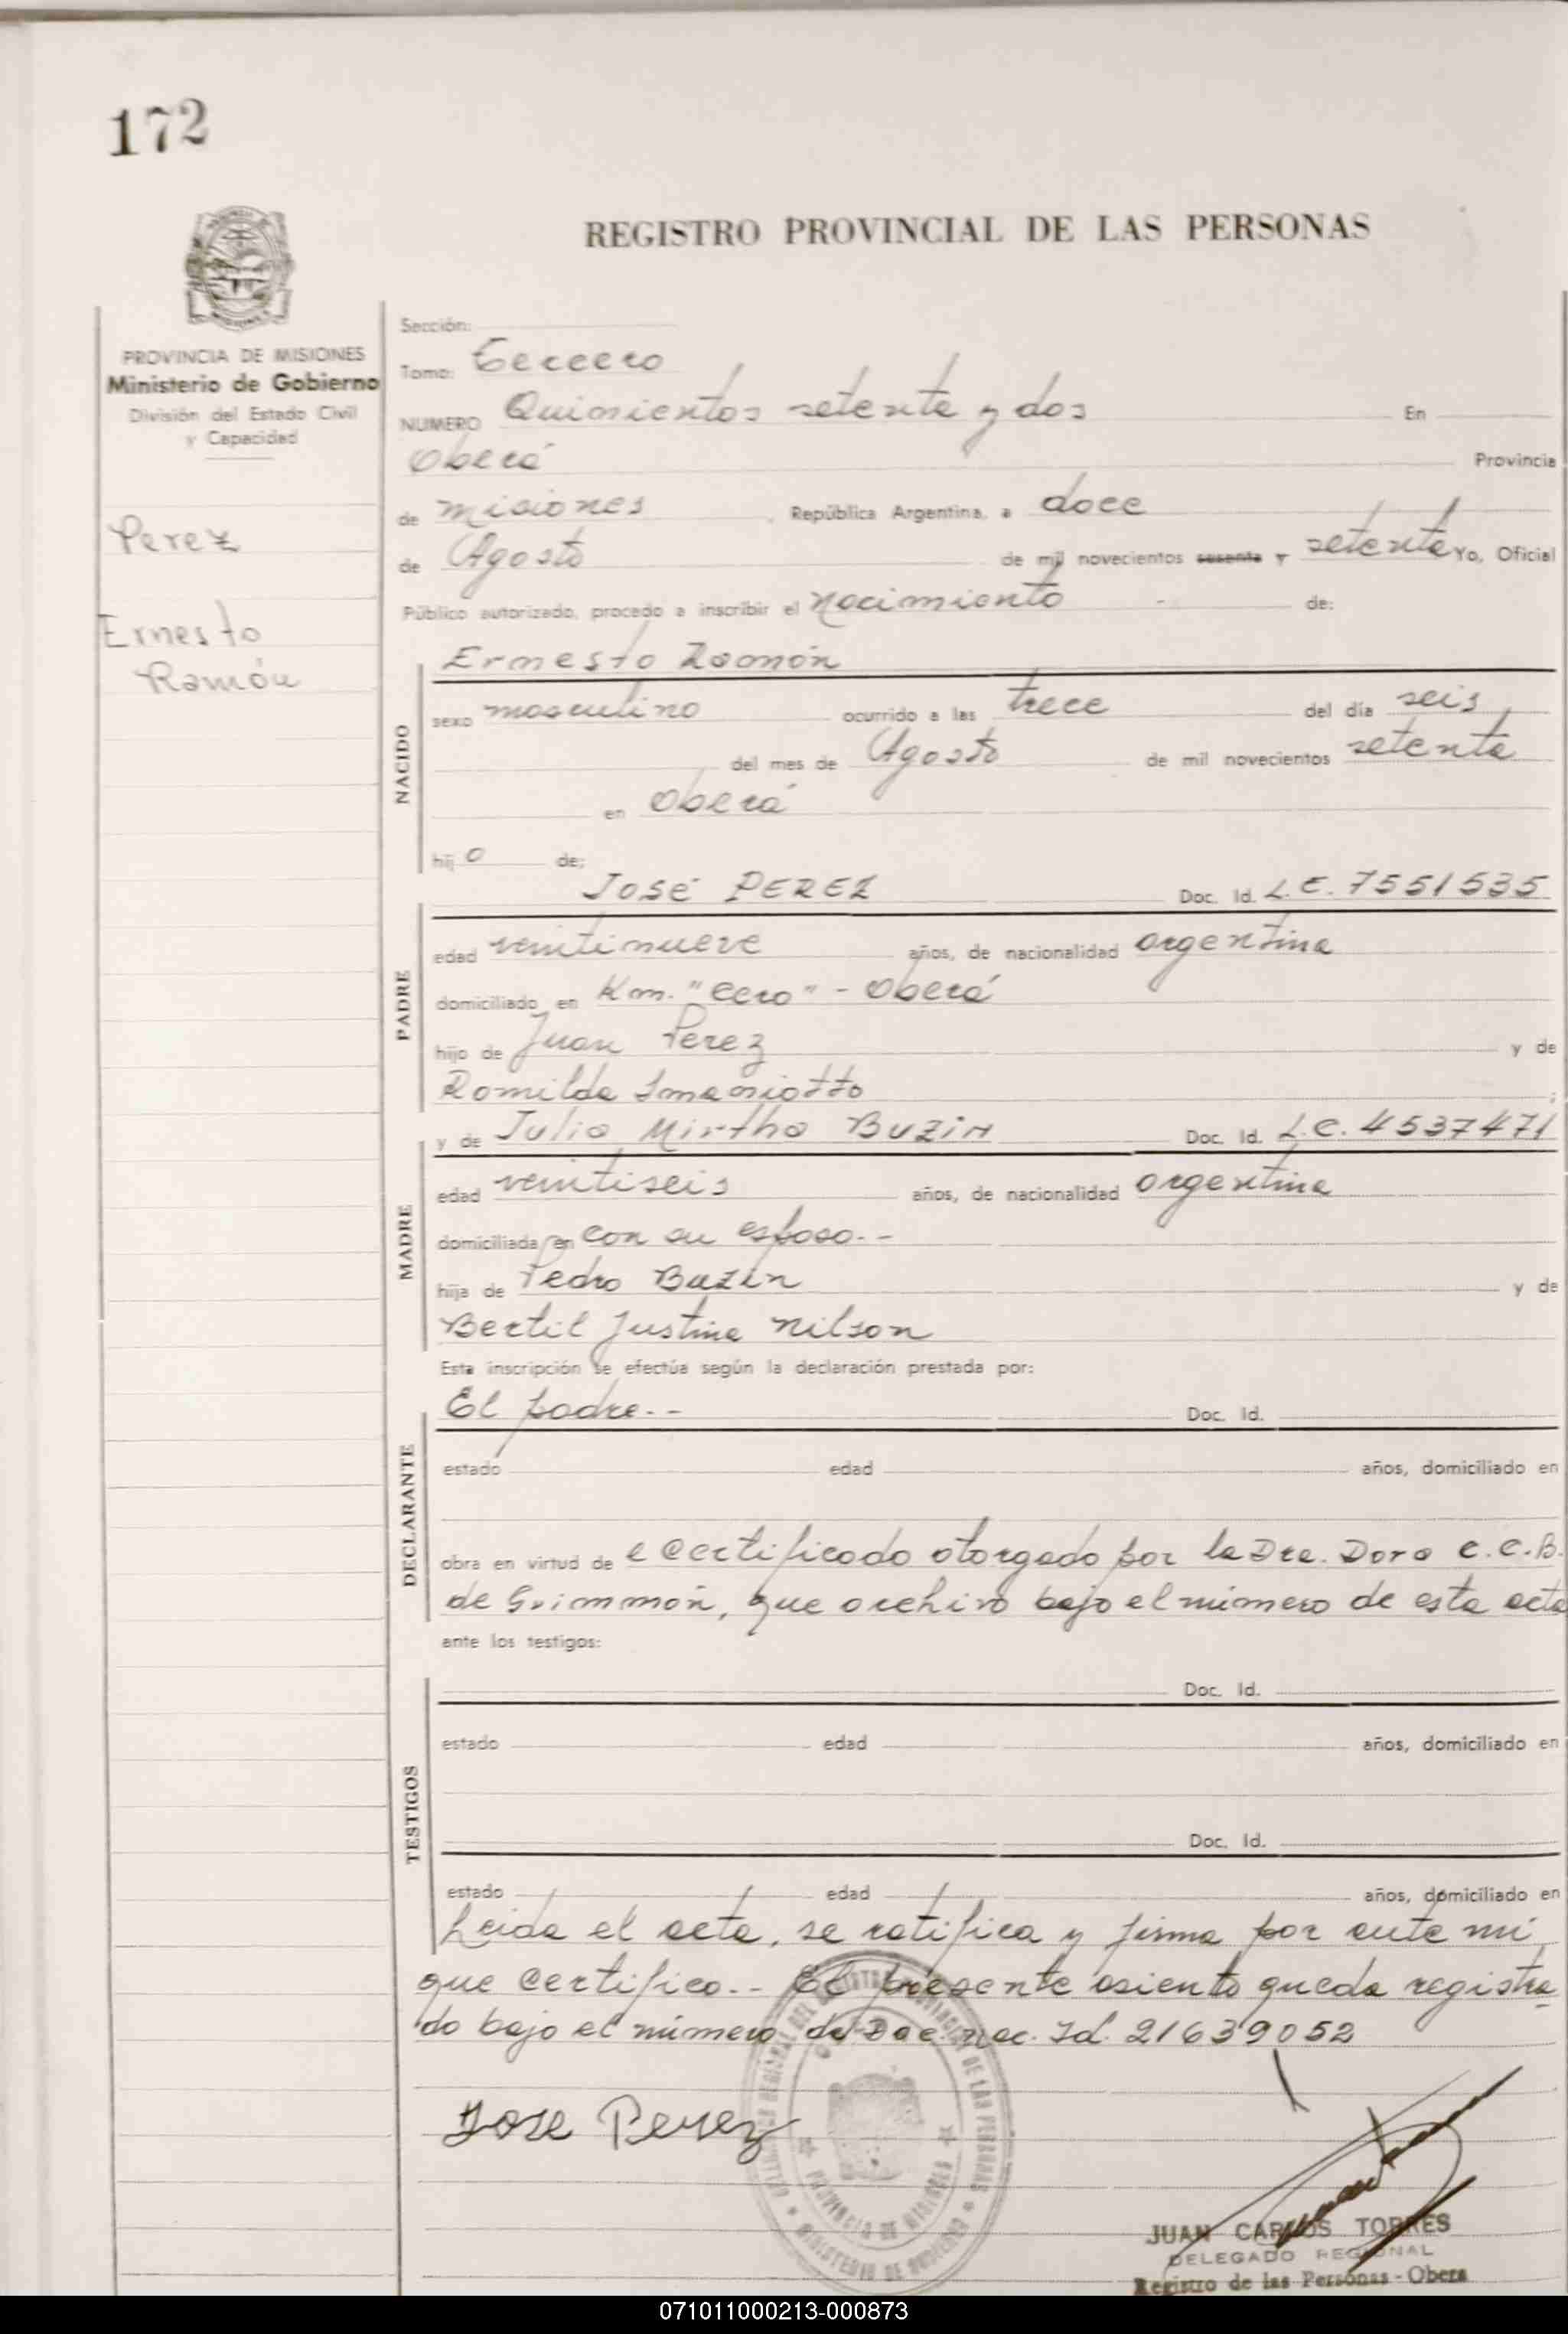 172
REGISTRO PROVINCIAL DE LAS PERSONAS
PROVINCIA DE MISIONES
Ministerio de Gobierno
División del Estado Civil
y Capacidad
Perez
Ernesto
Ramón
Sección:
Tomo: Tercero
NUMERO Quinientos setenta y dos En
Oberá Provincia
de Misiones República Argentina, a doce
de Agosto de mil novecientos sesenta y setenta Yo, Oficial
Público autorizado, procedo a inscribir el Nacimiento - de:
NACIDO
Ernesto Ramón
sexo masculino ocurrido a las trece del día seis
del mes de Agosto de mil novecientos setenta
en Oberá
hij o de:
PADRE
José PEREZ Doc. Id. L.E. 7551535
edad veintinueve años, de nacionalidad argentina
domiciliado en Km. "Cero" - Oberá
hijo de Juan Perez y de
Romilda ;
MADRE
y de Julia Mirtha BUZIN Doc. Id. L.C. 4537471
edad veintiseis años, de nacionalidad argentina
domiciliada en con su esposo.--
hija de Pedro Buzin y de
Bertil Justina Nilson
Esta inscripción se efectúa según la declaración prestada por:
DECLARANTE
El padre.-- Doc. Id.
estado edad años, domiciliado en
obra en virtud de el Certificado otorgado por la Dra. Dora C.C.B.
de que archivo bajo el número de esta acta
ante los testigos:
TESTIGOS
Doc. Id.
estado edad años, domiciliado en
Doc. Id.
estado edad años, domiciliado en
Leida el acta, se ratifica y firma por ante mi
que Certifico.-- El presente asiento queda registra
do bajo el número de Doc. nac. Id. 21639052
Jose Perez
PROVINCIA DE MISIONES
JUAN CARLOS TORRES
DELEGADO REGIONAL
Registro de las Personas - Obera
071011000213-000873